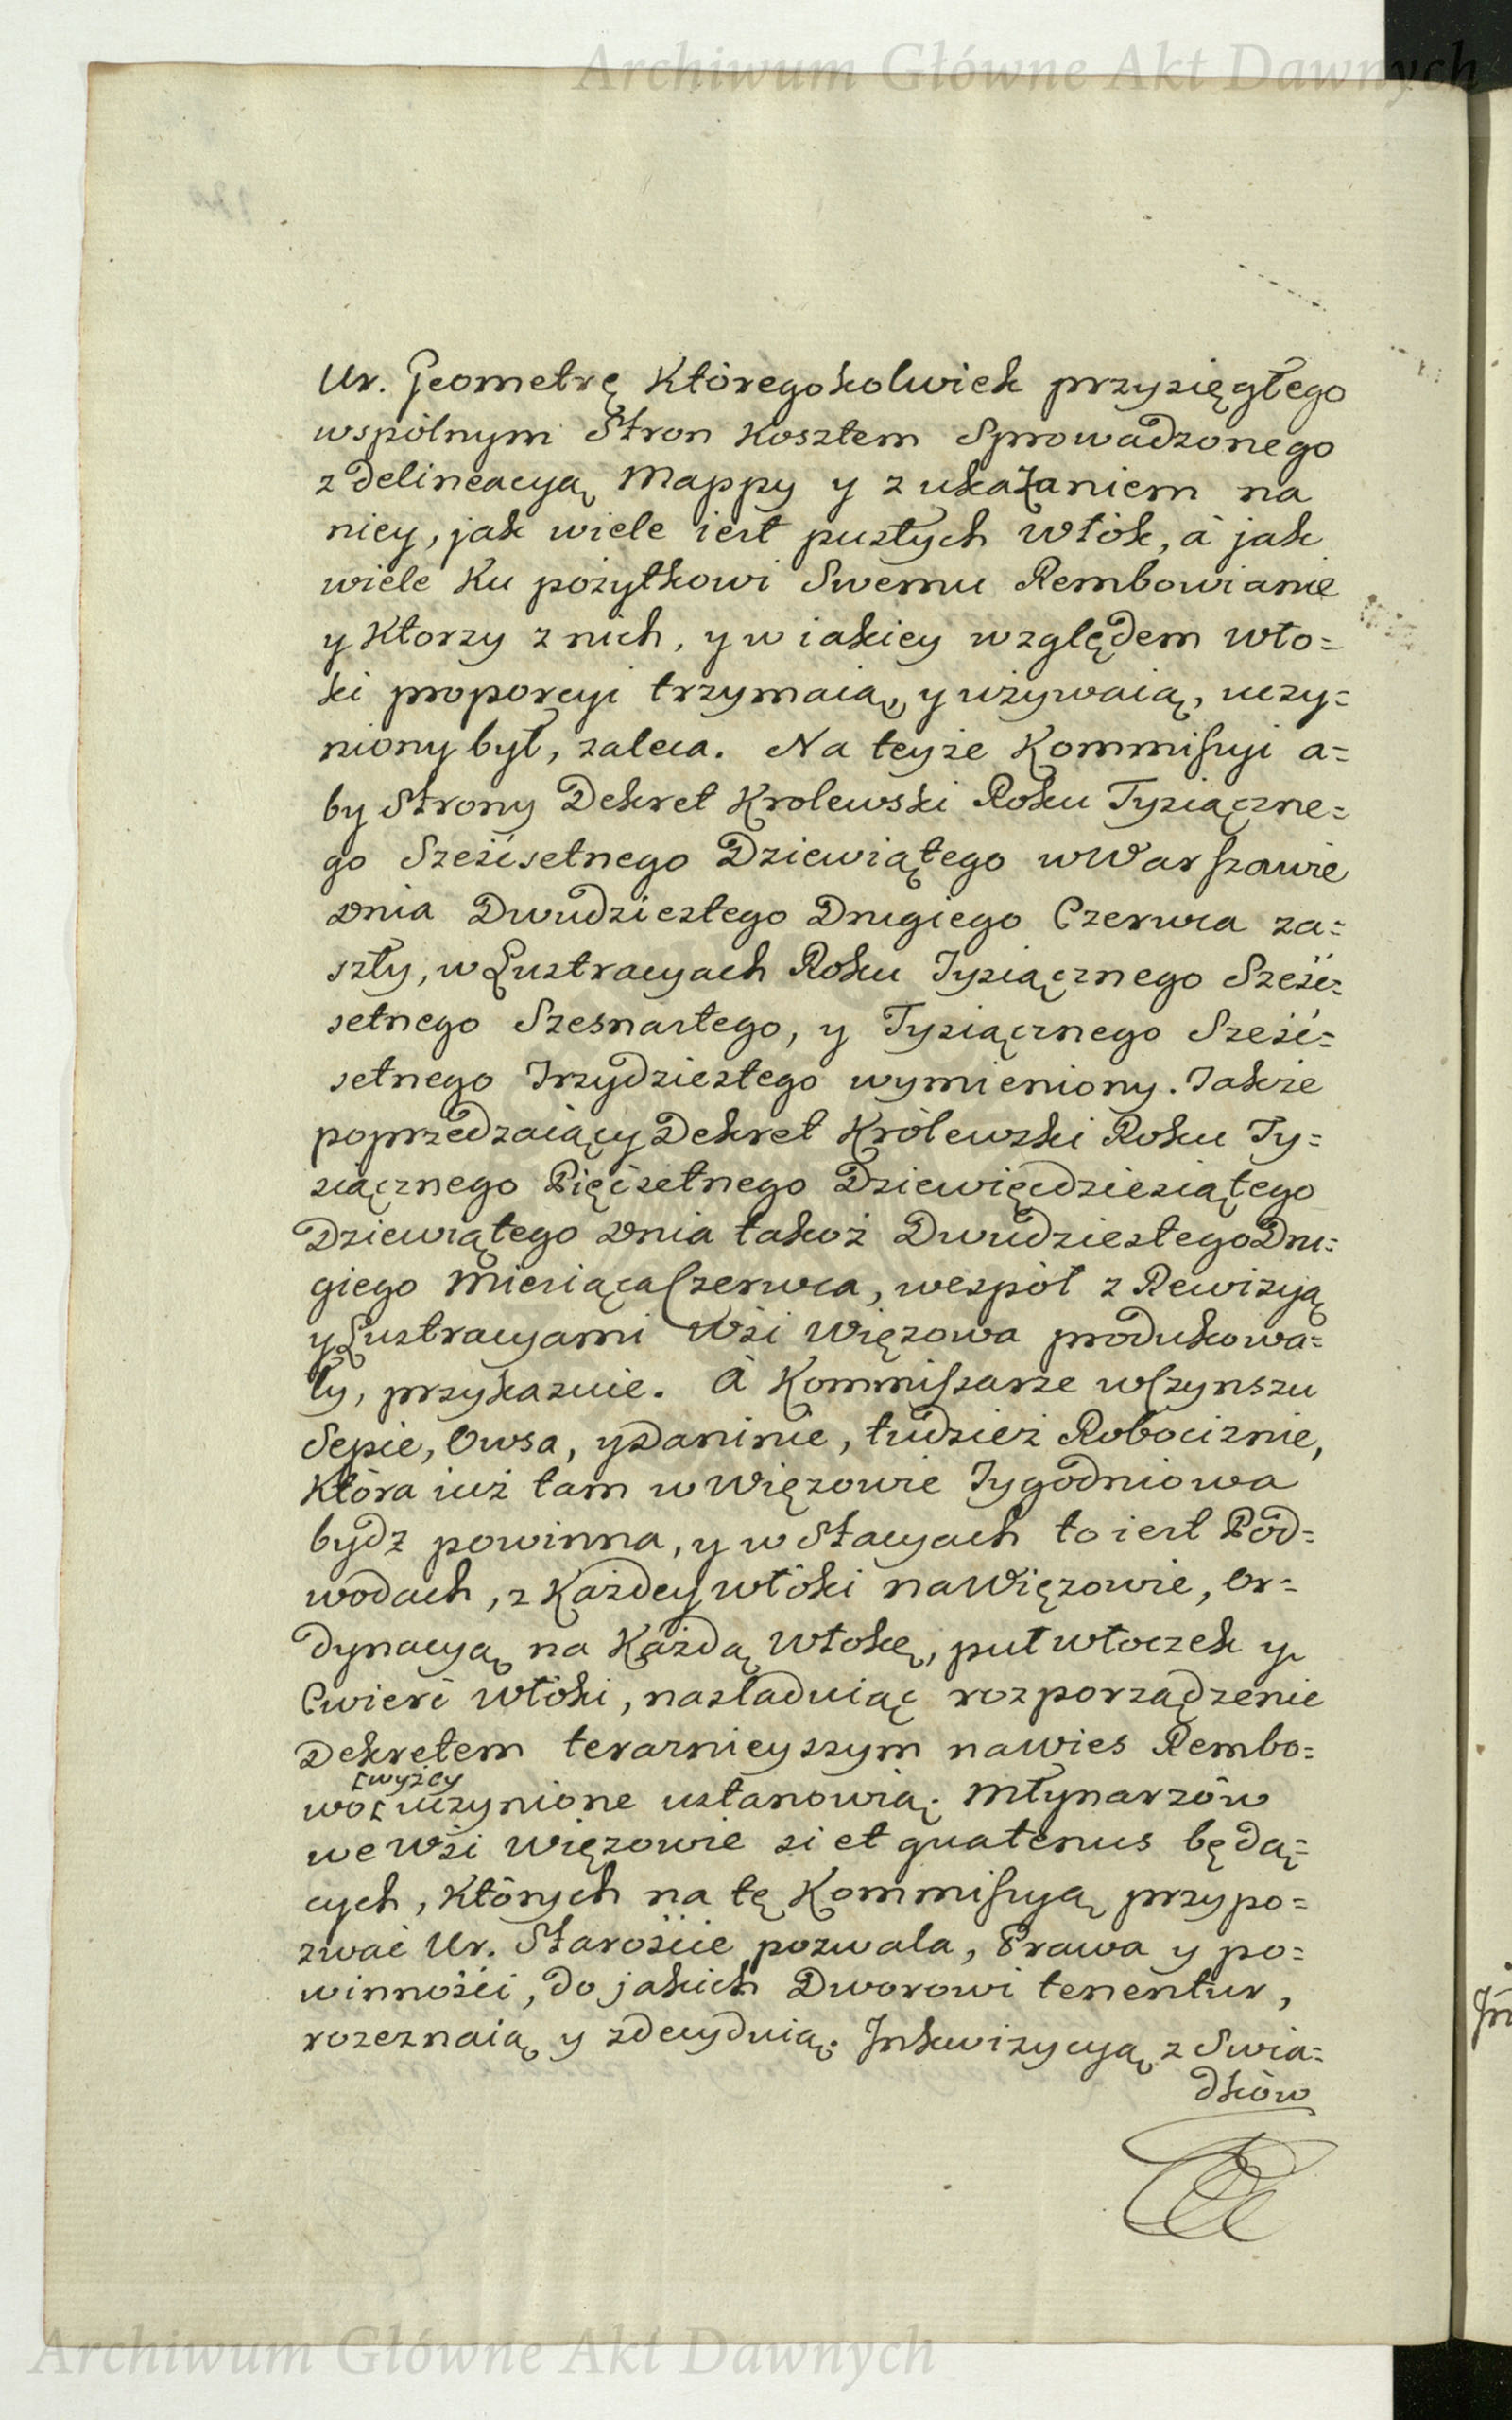 Archiwum Główne Akt Dawnych
Ur. Geometrę Któregokolwiek przysięgłego
wspólnym Stron Kosztem Sprowadzonego
z Delineacyą Mappy y z ukazaniem na
niey, jak wiele iest pustych Włók, à jak
wiele Ku pożytkowi Swemu Rembowianie
y Ktorzy z nich, y w iakiey względem wło=
ki proporcyi trzymaią, y używaią, uczy=
niony był, zaleca. Na teyże Kommissyi a=
by Strony Dekret Krolewski Roku Tysiączne=
go Sześćsetnego Dziewiątego w Warszawie
dnia Dwudziestego Drugiego Czerwca za=
szły, w Lustracyach Roku Tysiącznego Sześć=
setnego Szesnastego, y Tysiącznego Sześć=
setnego Trzydziestego wymieniony. Także
poprzedzaiący Dekret Królewski Roku Ty=
siącznego Pięćsetnego Dziewięćdziesiątego
Dziewiątego dnia takoż Dwudziestego Dru=
giego Miesiąca Czerwca, wespół z Rewizyą
y Lustracyami Wsi Więzowa produkowa=
ły, przykazuie. A Kommissarze w Czynszu
Sepie, Owsa, y Daninie, tudzież Robociznie,
Która iuż tam w Więzowie Tygodniowa
bydź powinna, y w Stacyach to iest Pod=
wodach, z Każdey włóki na Więzowie, Or=
dynacyą na Każdą Włokę, puł włoczek y
Cwierć włóki, nasladuiąc rozporządzenie
Dekretem teraznieyszym na wies Rembo=
wyżey
wo uczynione ustanowią. Młynarzów
we Wsi Więzowie si et quatenus będą=
cych, Których na tę Kommissyą przypo=
zwać Ur. Staroście pozwala, Prawa y po=
winności, do jakich Dworowi tenentur,
rozeznaią y zdecyduią. Inkwizycyą z Swia=
dków
Archiwum Główne Akt Dawnych